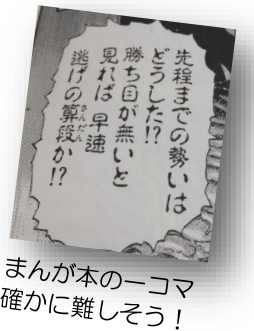 先程までの勢いは
どうした!?
勝ち目が無いと
見れば 早速
逃げの算段か!?
さんだん
まんが本の一コマ
確かに難しそう！